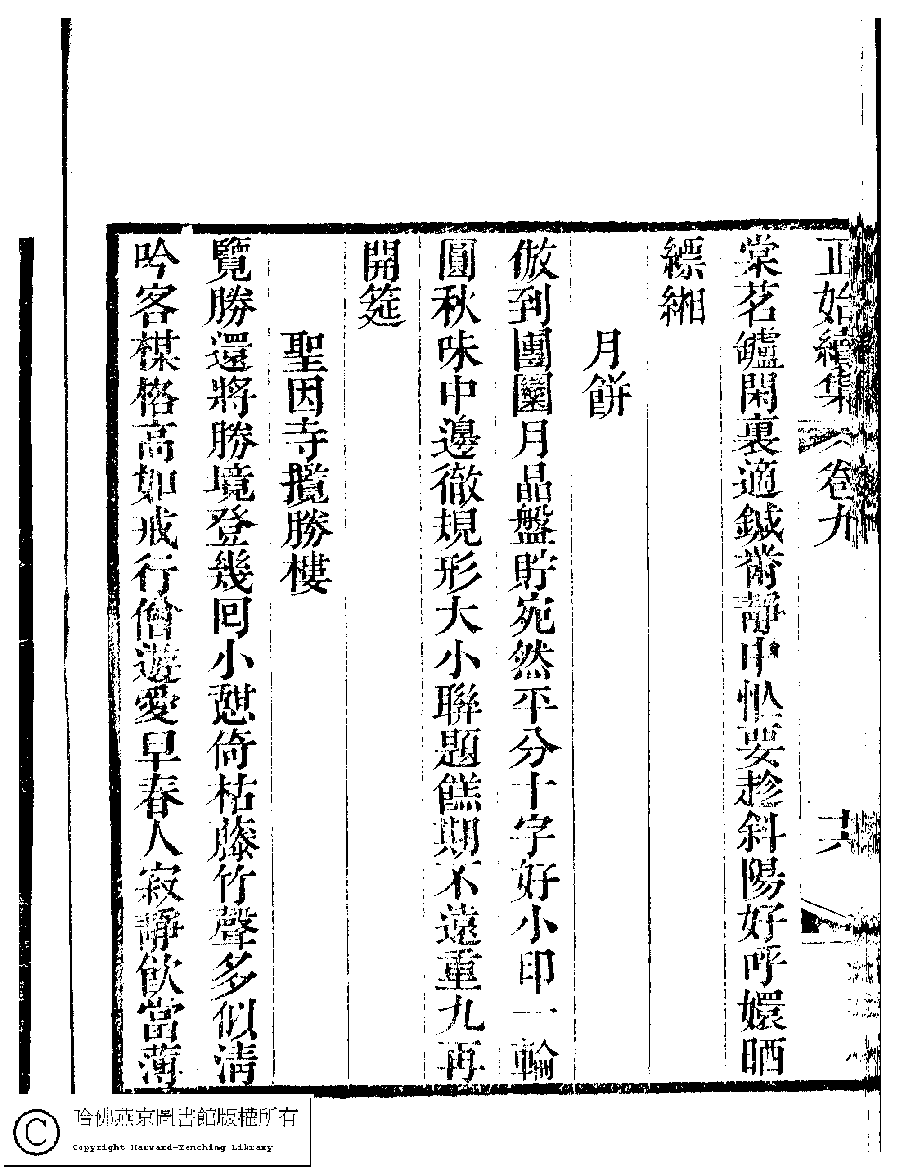 正始續集 卷九 十六
棠茗鑪閑裏適鍼薺靜中忺要趁斜陽好呼嬛晒
縹緗
月餅
倣到團圞月品盤貯宛然平分十字好小印一輪
圓秋味中邊徹規形大小聯題餻期不遠重九再
開筵
聖因寺攬勝樓
覽勝還將勝境登幾回小憇倚枯藤竹聲多似淸
吟客棋格高如戒行僧遊愛早春人寂靜飮當薄
哈佛燕京圖書館版權所有
Copyright Harvard-Yenching Library